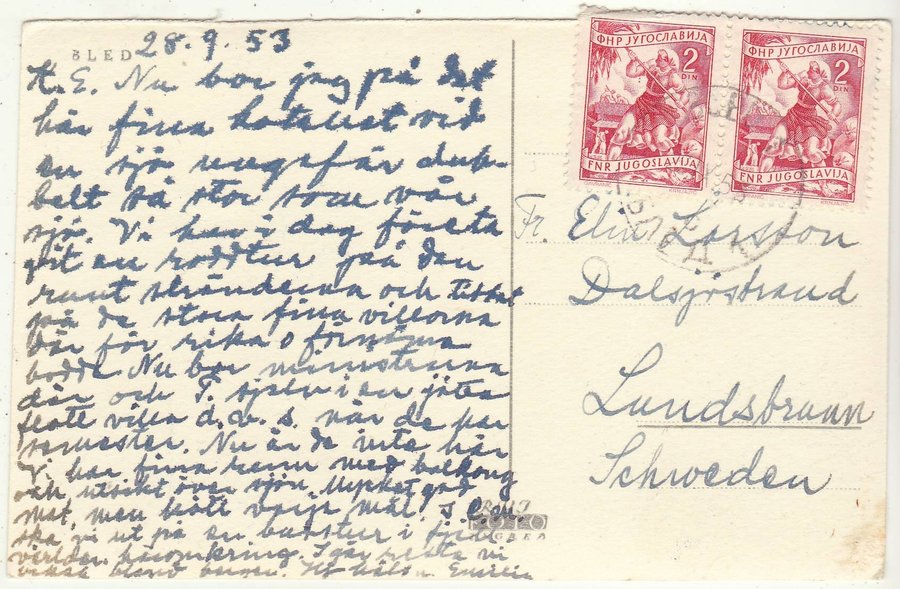 BLED
28.9.53
K. E. Nu bor jag på det
här fina hotellet vid
en sjö ungefär dub-
belt så stor som vår
sjö. Vi har i dag företa
git en roddtur på den
runt stränderna och tittat
på de stora fina villorna
där för rika o förnäma
bodde. Nu bor ministrarna
där och T. själv i en jätte
flott villa d.v.s. när de har
semester. Nu är de inte här
Vi har fina rum med balkong
och utsikt över sjön. Mycket god
mat, men kött varje mål. I e.m.
ska vi ut på en busstur i fjäll
världen häromkring. I går
vi
FOTO
ФНР ЈУГОСЛАВИЈА
2
DIN
FNR JUGOSLAVIJA
ФНР ЈУГОСЛАВИЈА
2
DIN
FNR JUGOSLAVIJA
Fr. Elin Larsson
Dalsjöstrand
Lundsbrunn
Schweden